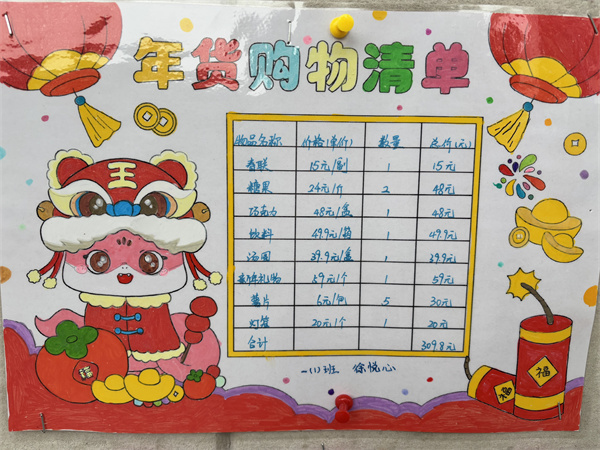 年货购物清单
物品名称 价格(单价) 数量 总价(元)
春联 15元/副 1 15元
糖果 24元/ 2 48元
巧克力 48元/盒 1 48元
饮料 49.9元/箱 1 49.9元
汤圆 39.9元/盒 1 39.9元
礼物 1 59元
薯片 6元/ 5 30元
灯笼 20元/个 1 20元
合计 309.8元
一(1)班 徐悦心
王
福
福
福